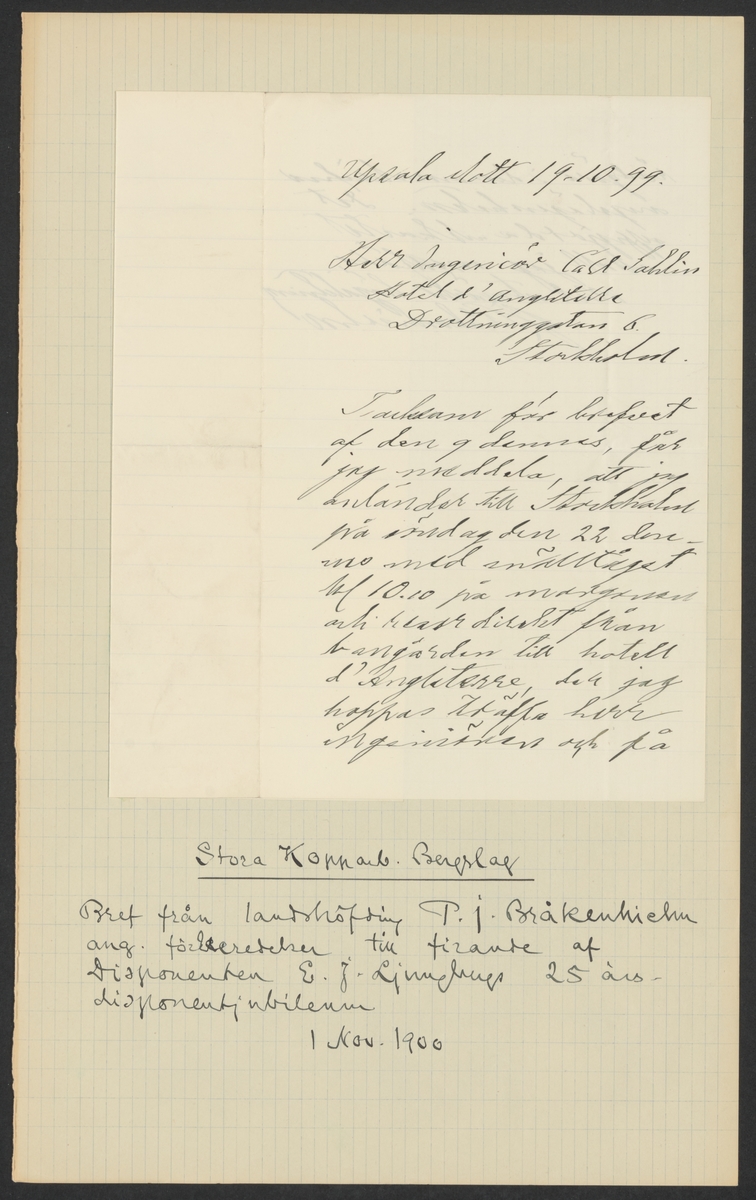 Upsala slott 19-10-99.
Herr Ingeniör Carl Sahlin
Hôtel d'Angleterre
Drottninggatan 6.
Stockholm.
Tacksam för brefvet
af den 9 dennes, får
jag meddela, att jag
anländer till Stockholm
på söndag den 22 den-
nes med snälltåget
kl 10.10 på morgonen
och reser direkt från
bangården till hotell
d'Angleterre, der jag
hoppas träffa herr
ingeniören och på
Stora Kopparb. Bergslag
Bref från landshöfding P. J. Bråkenhielm
ang. förberedelser till firande af
Disponenten E. J. Ljungbergs 25 års-
disponentjubileum
1 Nov. 1900